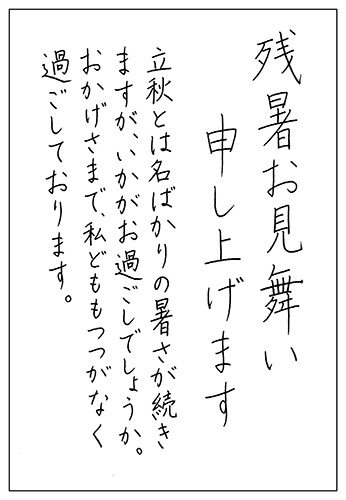 残暑お見舞い
申し上げます
立秋とは名ばかりの暑さが続き
ますが、いかがお過ごしでしょうか。
おかげさまで、私どももつつがなく
過ごしております。